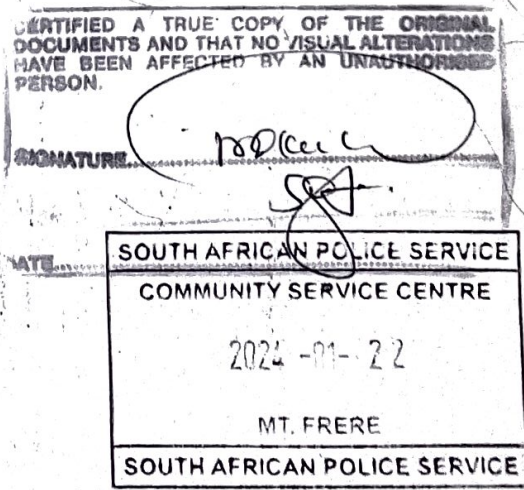 CERTIFIED A TRUE COPY OF THE ORIGINAL
DOCUMENTS AND THAT NO VISUAL ALTERATIONS
HAVE BEEN AFFECTED BY AN UNAUTHORISED
PERSON.
SIGNATURE
DATE
SOUTH AFRICAN POLICE SERVICE
COMMUNITY SERVICE CENTRE
2024 -01- 22
MT. FRERE
SOUTH AFRICAN POLICE SERVICE